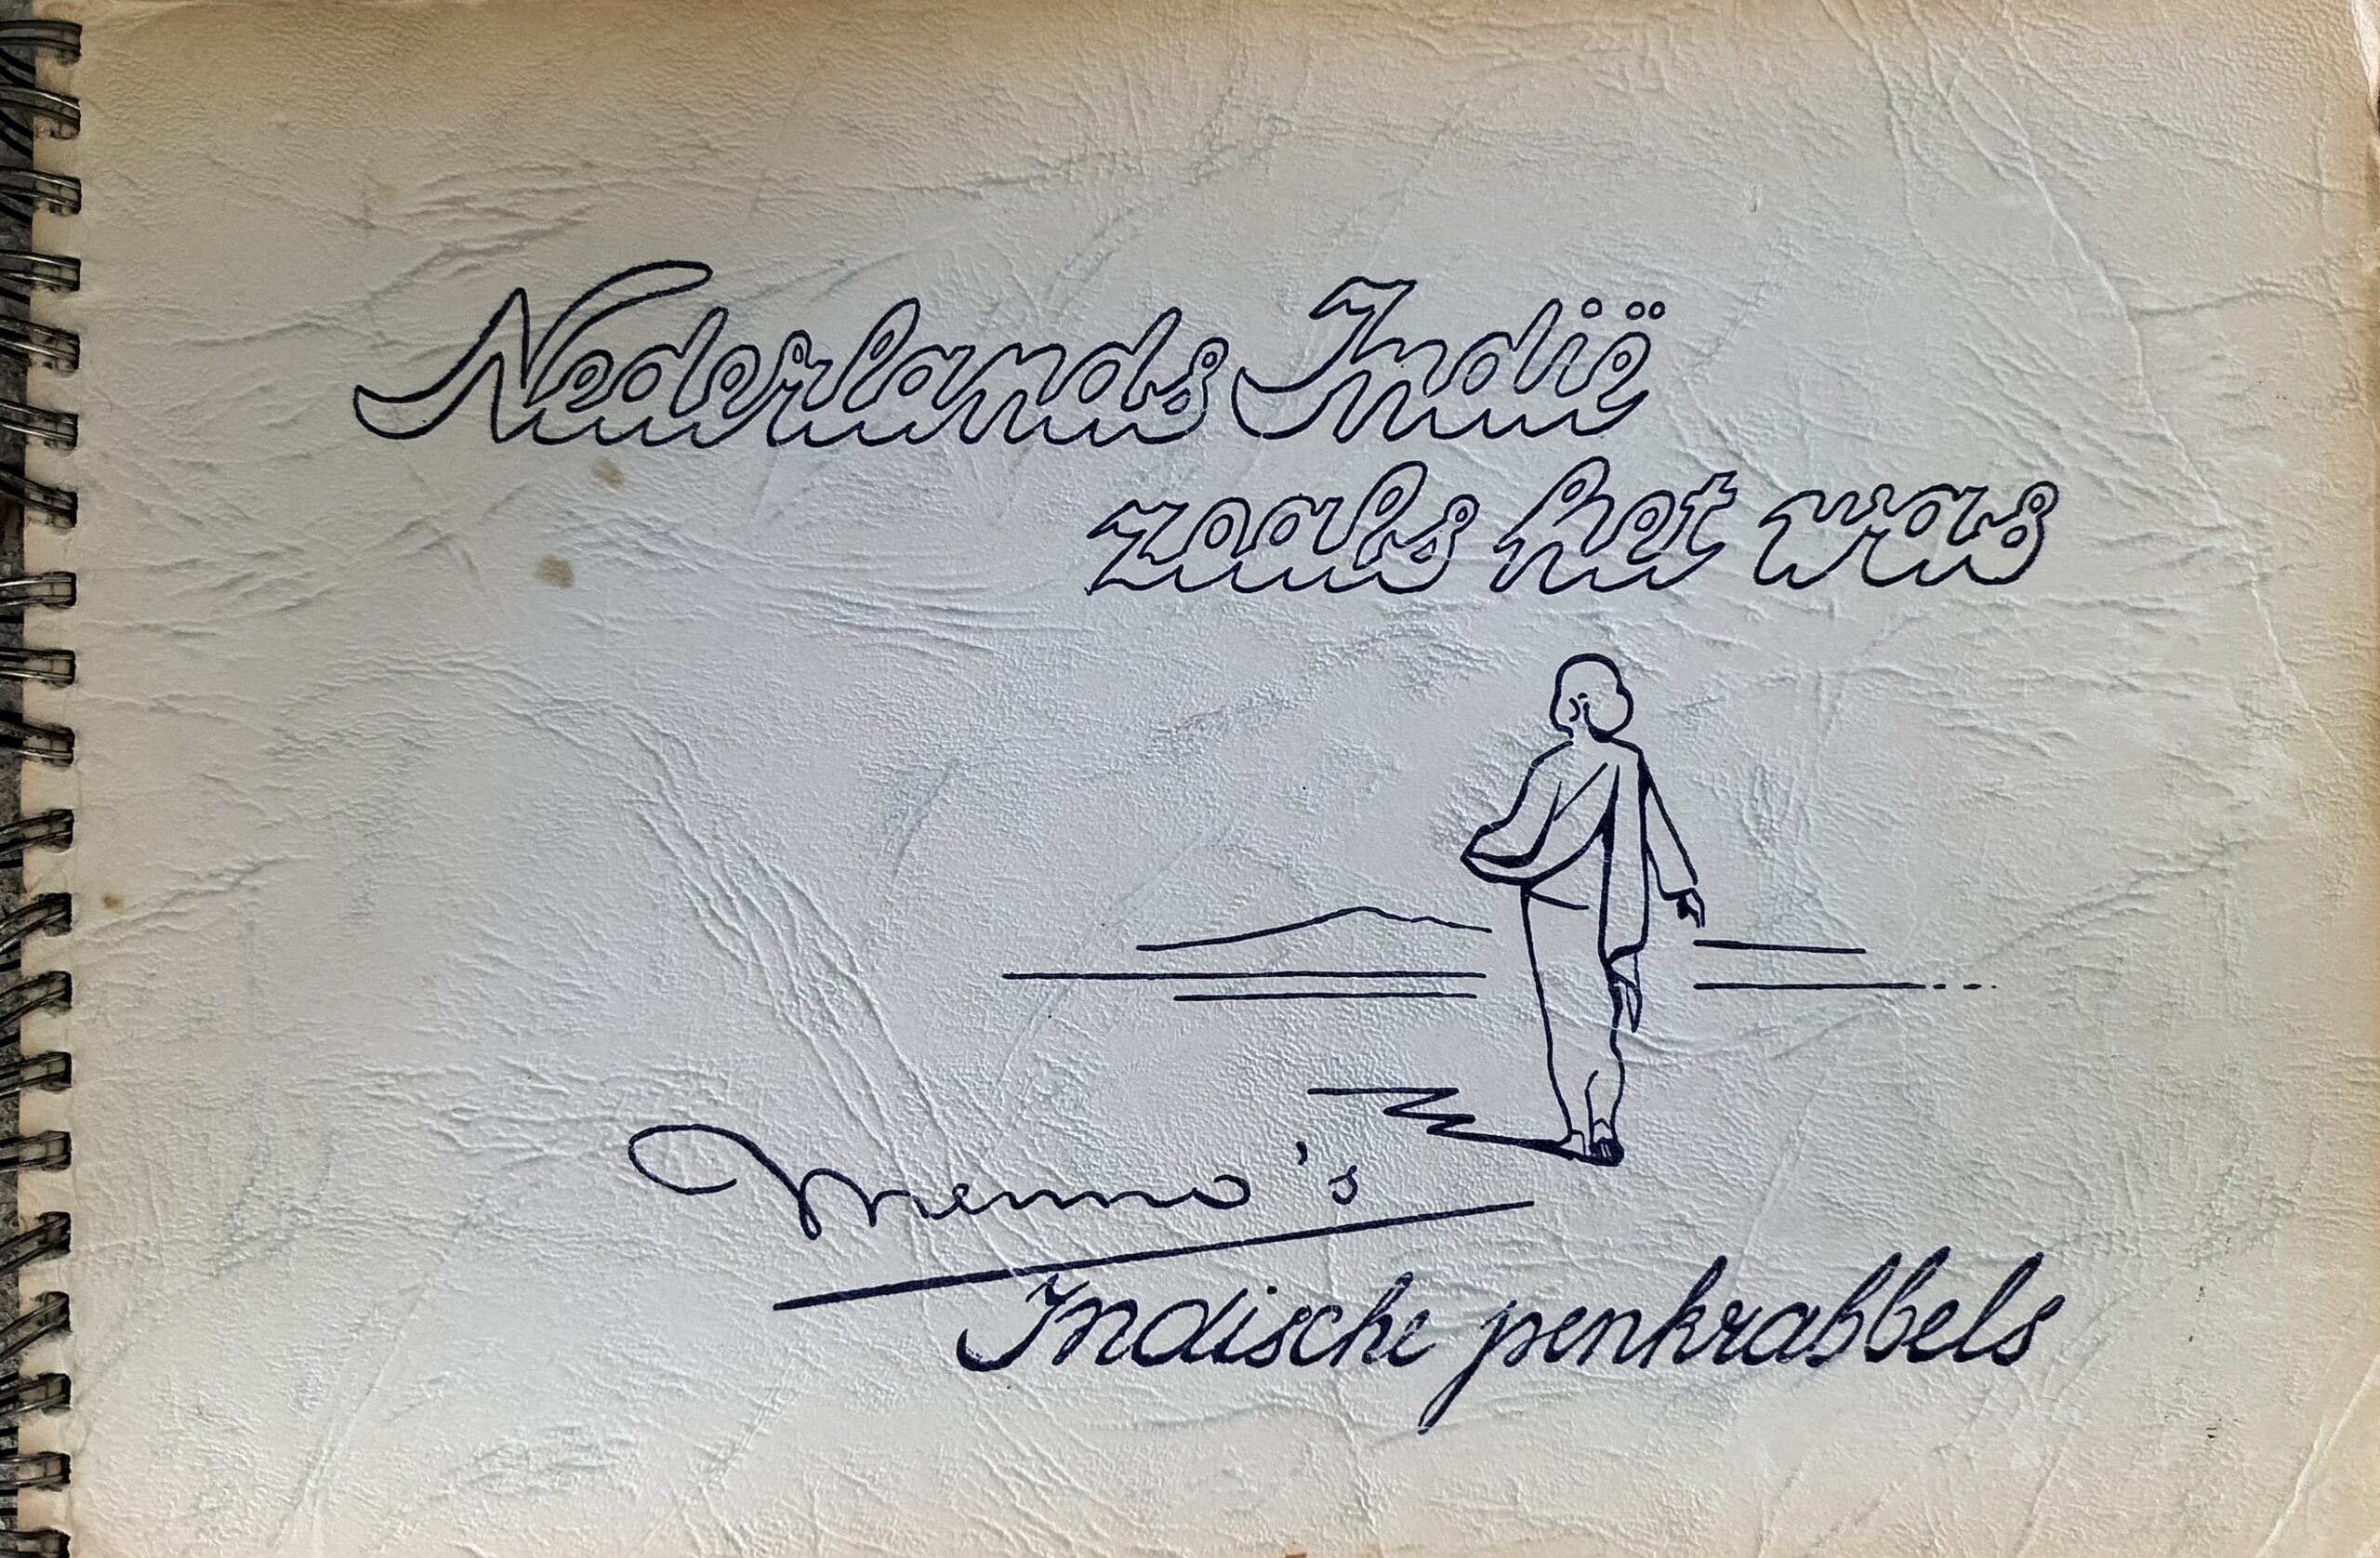 Nederlands Indië
zoals het was
Menno's
Indische penkrabbels